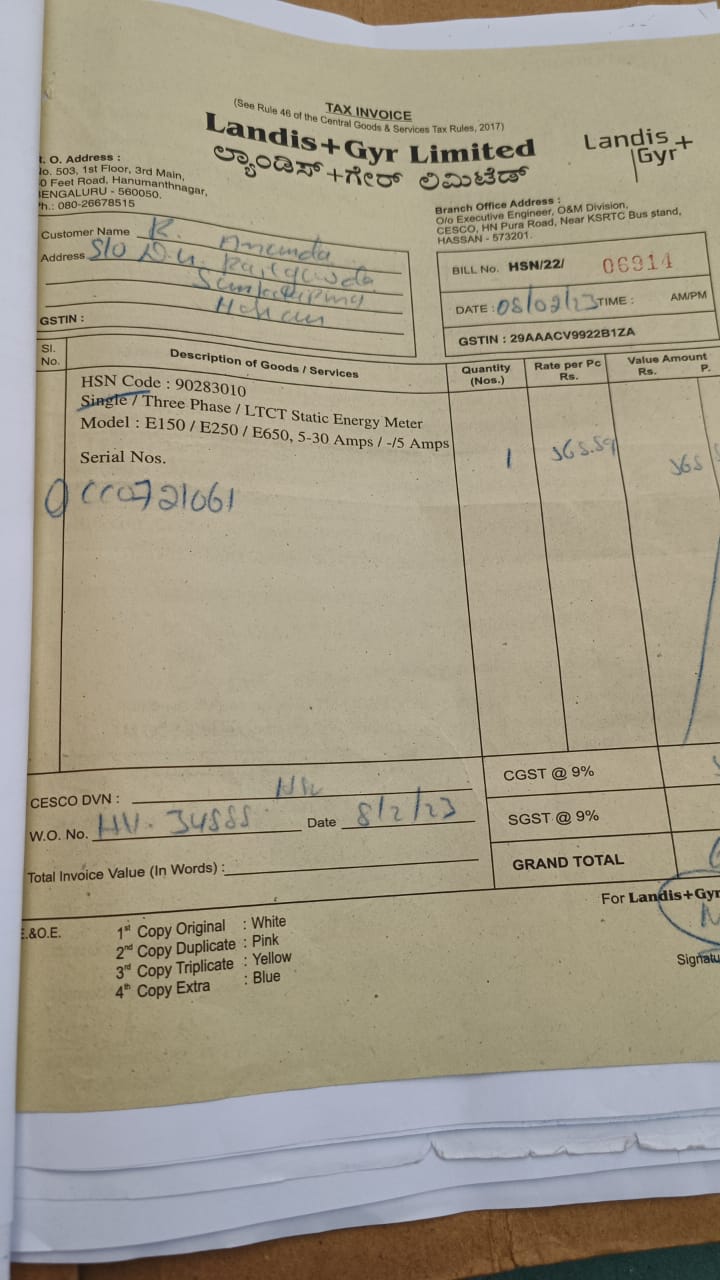 TAX INVOICE
(See Rule 46 of the Central Goods & Services Tax Rules, 2017)
Landis+Gyr Limited
ಲ್ಯಾಂಡಿಸ್+ಗೇರ್ ಲಿಮಿಟೆಡ್
Landis
Gyr+
. O. Address :
No. 503, 1st Floor, 3rd Main,
0 Feet Road, Hanumanthnagar,
BENGALURU - 560050.
Ph.: 080-26678515
Branch Office Address :
O/o Executive Engineer, O&M Division,
CESCO, HN Pura Road, Near KSRTC Bus stand,
HASSAN - 573201.
Customer Name K. Ananda
Address S/o
GSTIN :
BILL No. HSN/22/ 06914
DATE : 08/02/23 TIME : AM/PM
GSTIN : 29AAACV9922B1ZA
Sl. No. Description of Goods / Services Quantity (Nos.) Rate per Pc Rs. Value Amount Rs. P.
HSN Code : 90283010
Single / Three Phase / LTCT Static Energy Meter
Model : E150 / E250 / E650, 5-30 Amps / -/5 Amps
Serial Nos. 1
CESCO DVN :
W.O. No. Date 8/2/23
Total Invoice Value (In Words) :
CGST @ 9%
SGST @ 9%
GRAND TOTAL
E.&O.E.
1st Copy Original : White
2nd Copy Duplicate : Pink
3rd Copy Triplicate : Yellow
4th Copy Extra : Blue
For Landis+Gyr